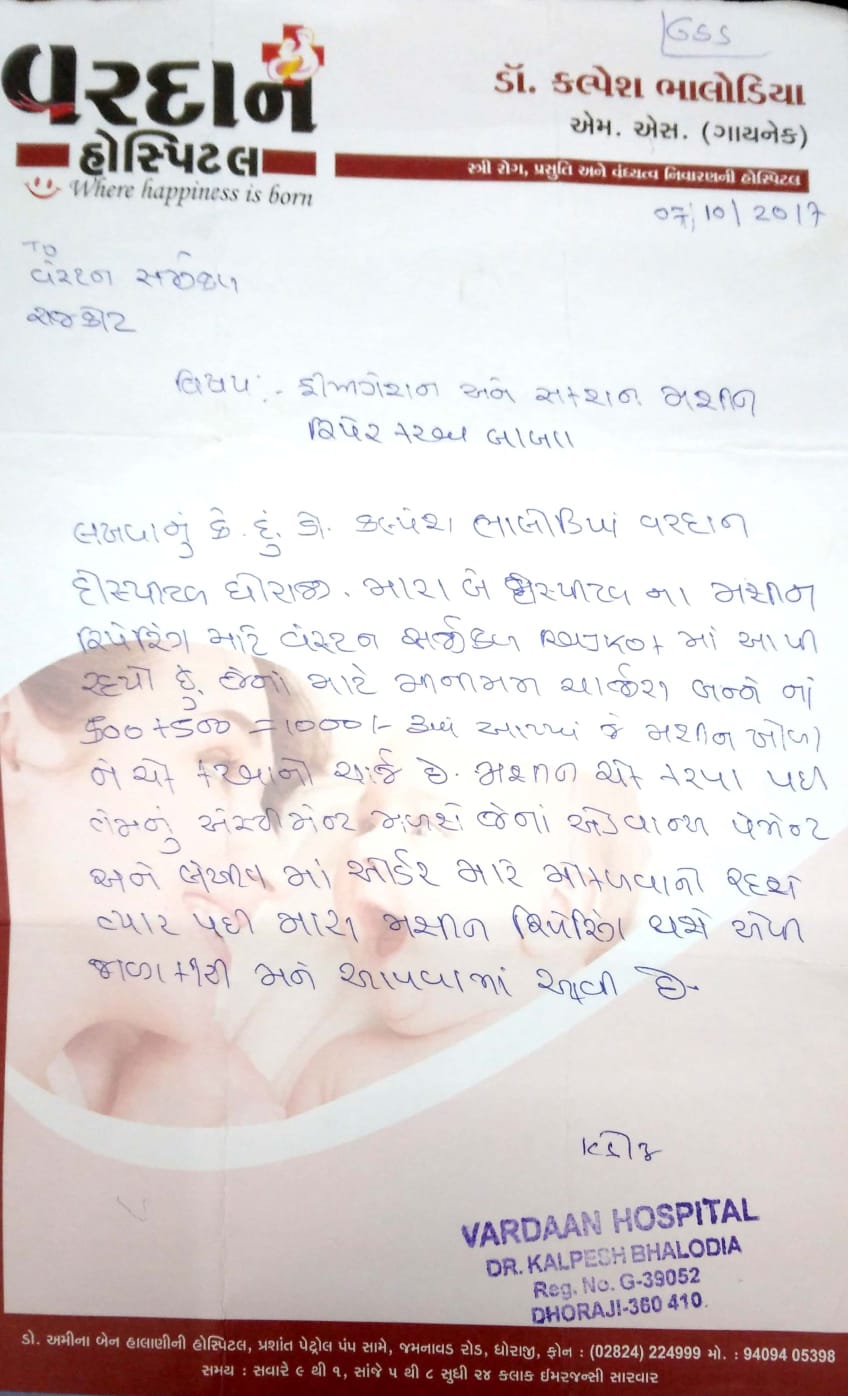 GSS
વરદાન
હોસ્પિટલ
Where happiness is born
ડૉ. કલ્પેશ ભાલોડિયા
એમ. એસ. (ગાયનેક)
સ્ત્રી રોગ, પ્રસુતિ અને વંધ્યત્વ નિવારણની હોસ્પિટલ
07/10/2017
TO
વેસ્ટન સર્જીકલ
રાજકોટ
વિષય :- અને સકશન મશીન
રિપેર કરવા બાબત
લખવાનું કે હું ડો. કલ્પેશ ભાલોડિયા વરદાન
હોસ્પીટલ ધોરાજી. મારા બે હોસ્પીટલ ના મશીન
રિપેરિંગ માટે વેસ્ટન સર્જીકલ RAJKOT માં આપી
રહ્યો છું. જેનાં માટે ચાર્જીસ બન્ને નાં
500+500 =1000/- આપ્યાં જે મશીન ખોલી
ને ચેક કરવાનો ચાર્જ છે. મશીન ચેક કર્યા પછી
તેમનું એસ્ટીમેન્ટ મળશે જેનાં એડવાન્સ પેમેન્ટ
અને લેખીત માં ઓર્ડર મારે મોકલવાનો રહેશે
ત્યાર પછી મારા મશીન રિપેરિંગ થશે એવી
જાણકારી મને આપવામાં આવી છે.
VARDAAN HOSPITAL
DR. KALPESH BHALODIA
Reg. No. G-39052
DHORAJI-360 410.
ડો. અમીના બેન હાલાણીની હોસ્પિટલ, પ્રશાંત પેટ્રોલ પંપ સામે, જમનાવડ રોડ, ધોરાજી, ફોન : (02824) 224999 મો. : 94094 05398
સમય : સવારે ૯ થી ૧, સાંજે ૫ થી ૮ સુધી ૨૪ કલાક ઇમરજન્સી સારવાર